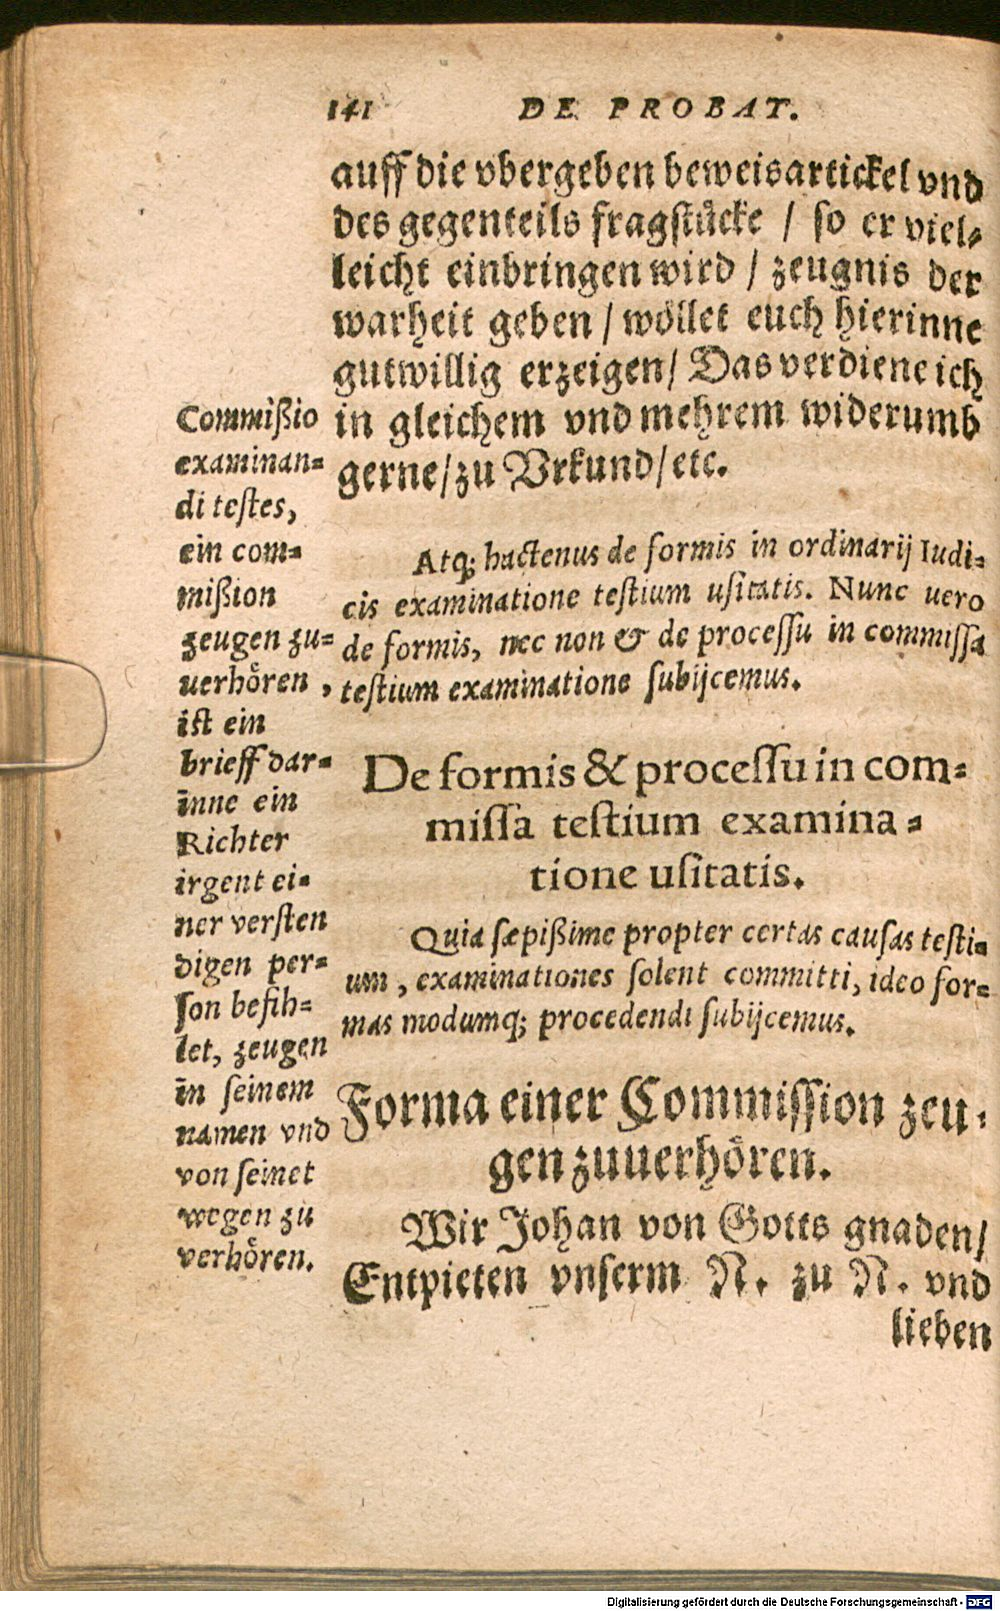 141 DE PROBAT.
auff die vbergeben beweisartickel vnd
des gegenteils fragstücke / so er viel⸗
leicht einbringen wird / zeugnis der
warheit geben / wöllet euch hierinne
gutwillig erzeigen / Das verdiene ich
in gleichem vnd mehrem widerumb
gerne / zu Vrkund / etc.
Commißio
examinan⸗
di testes,
ein com⸗
mißion
zeugen zu⸗
uerhören,
ist ein
brieff dar⸗
inne ein
Richter
irgent ei⸗
ner versten
digen per⸗
son befih⸗
let, zeugen
in seinem
namen vnd
von seinet
wegen zu
verhören.
Atq; hactenus de formis in ordinarij Iudi⸗
cis examinatione testium usitatis. Nunc uero
de formis, nec non & de processu in commissa
testium examinatione subijcemus.
De formis & processu in com⸗
missa testium examina⸗
tione usitatis.
Quia sæpißime propter certas causas testi⸗
um, examinationes solent committi, ideo for⸗
mas modumq; procedendi subijcemus.
Forma einer Commission zeu⸗
gen zuuerhören.
Wir Johan von Gotts gnaden /
Entpieten vnserm N. zu N. vnd
lieben
Digitalisierung gefördert durch die Deutsche Forschungsgemeinschaft - DFG